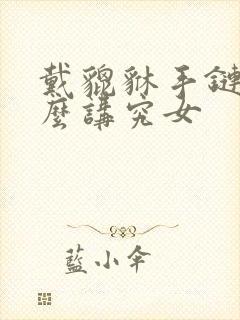 戴貔貅手鏈
麼講究女
藍小傘